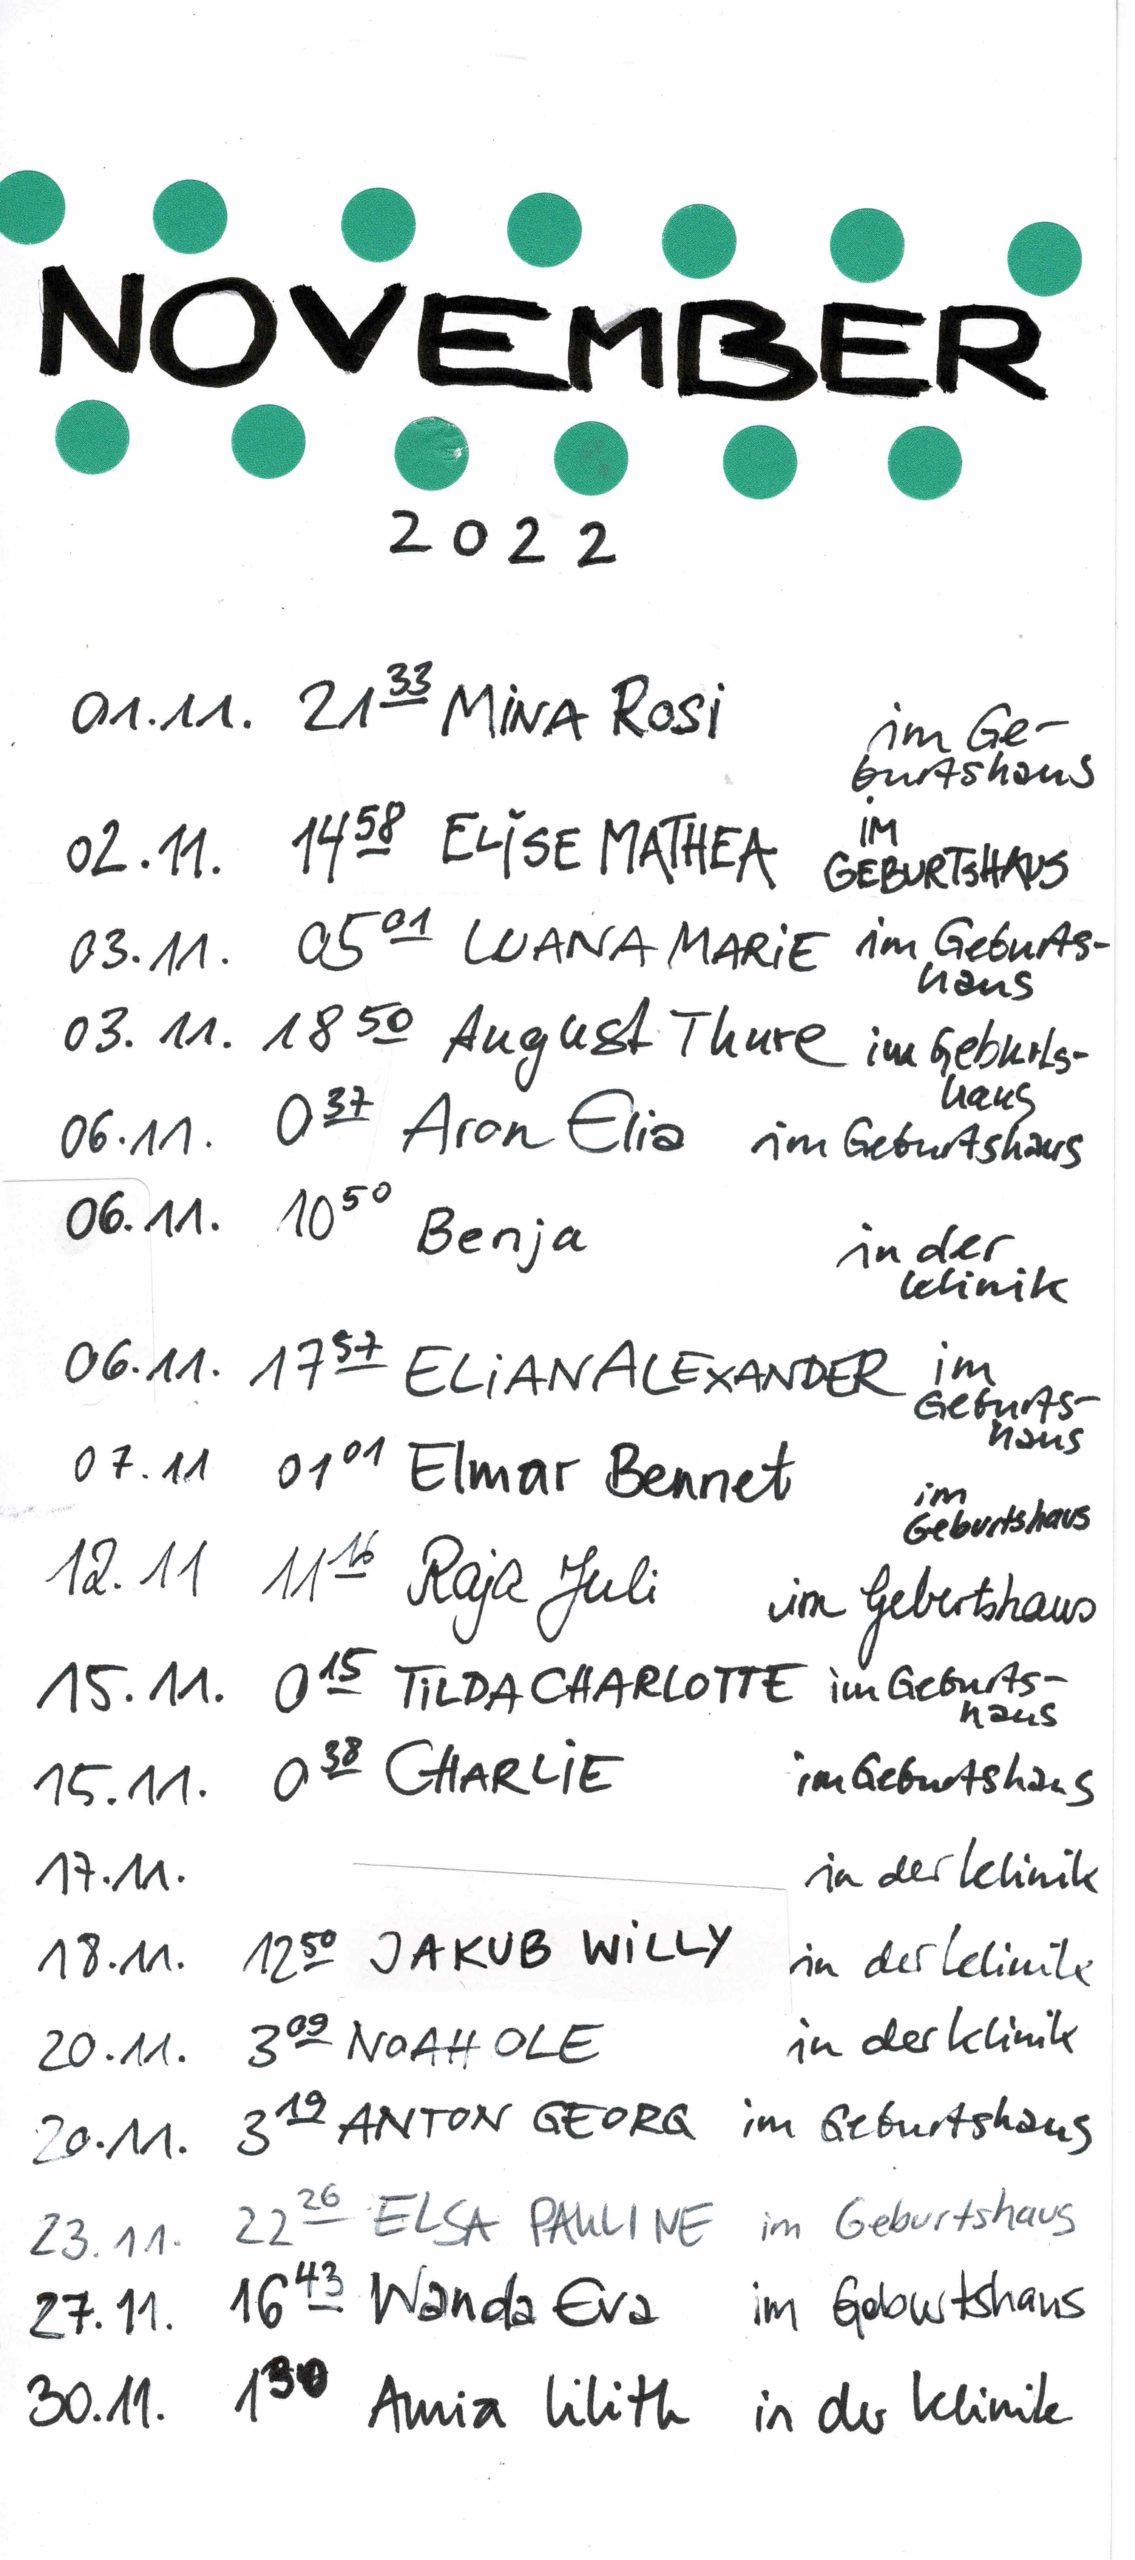 NOVEMBER
2022
01.11. 21 33 MiNA RoSi im Ge-
burtshaus
02.11. 14 58 ELİSE MATHEA IM
GEBURTSHAUS
03.11. 05 01 LUANA MARiE im Geburts-
haus
03.11. 18 50 August Thure im Geburts-
haus
06.11. 0 37 Aron Elia im Geburtshaus
06.11. 10 50 Benja in der
Klinik
06.11. 17 57 ELiAN ALEXANDER im
Geburts-
haus
07.11 01 01 Elmar Bennet im
Geburtshaus
12.11 11 16 Raja Juli im Geburtshaus
15.11. 0 15 TiLDA CHARLOTTE im Geburts-
haus
15.11. 0 38 CHARLiE im Geburtshaus
17.11. in der Klinik
18.11. 12 50 JAKUB WiLLY in der Klinik
20.11. 3 09 NOAH OLE in der Klinik
20.11. 3 19 ANTON GEORG im Geburtshaus
23.11. 22 26 ELSA PAULINE im Geburtshaus
27.11. 16 43 Wanda Eva im Geburtshaus
30.11. 1 30 Amia Lilith in der Klinik